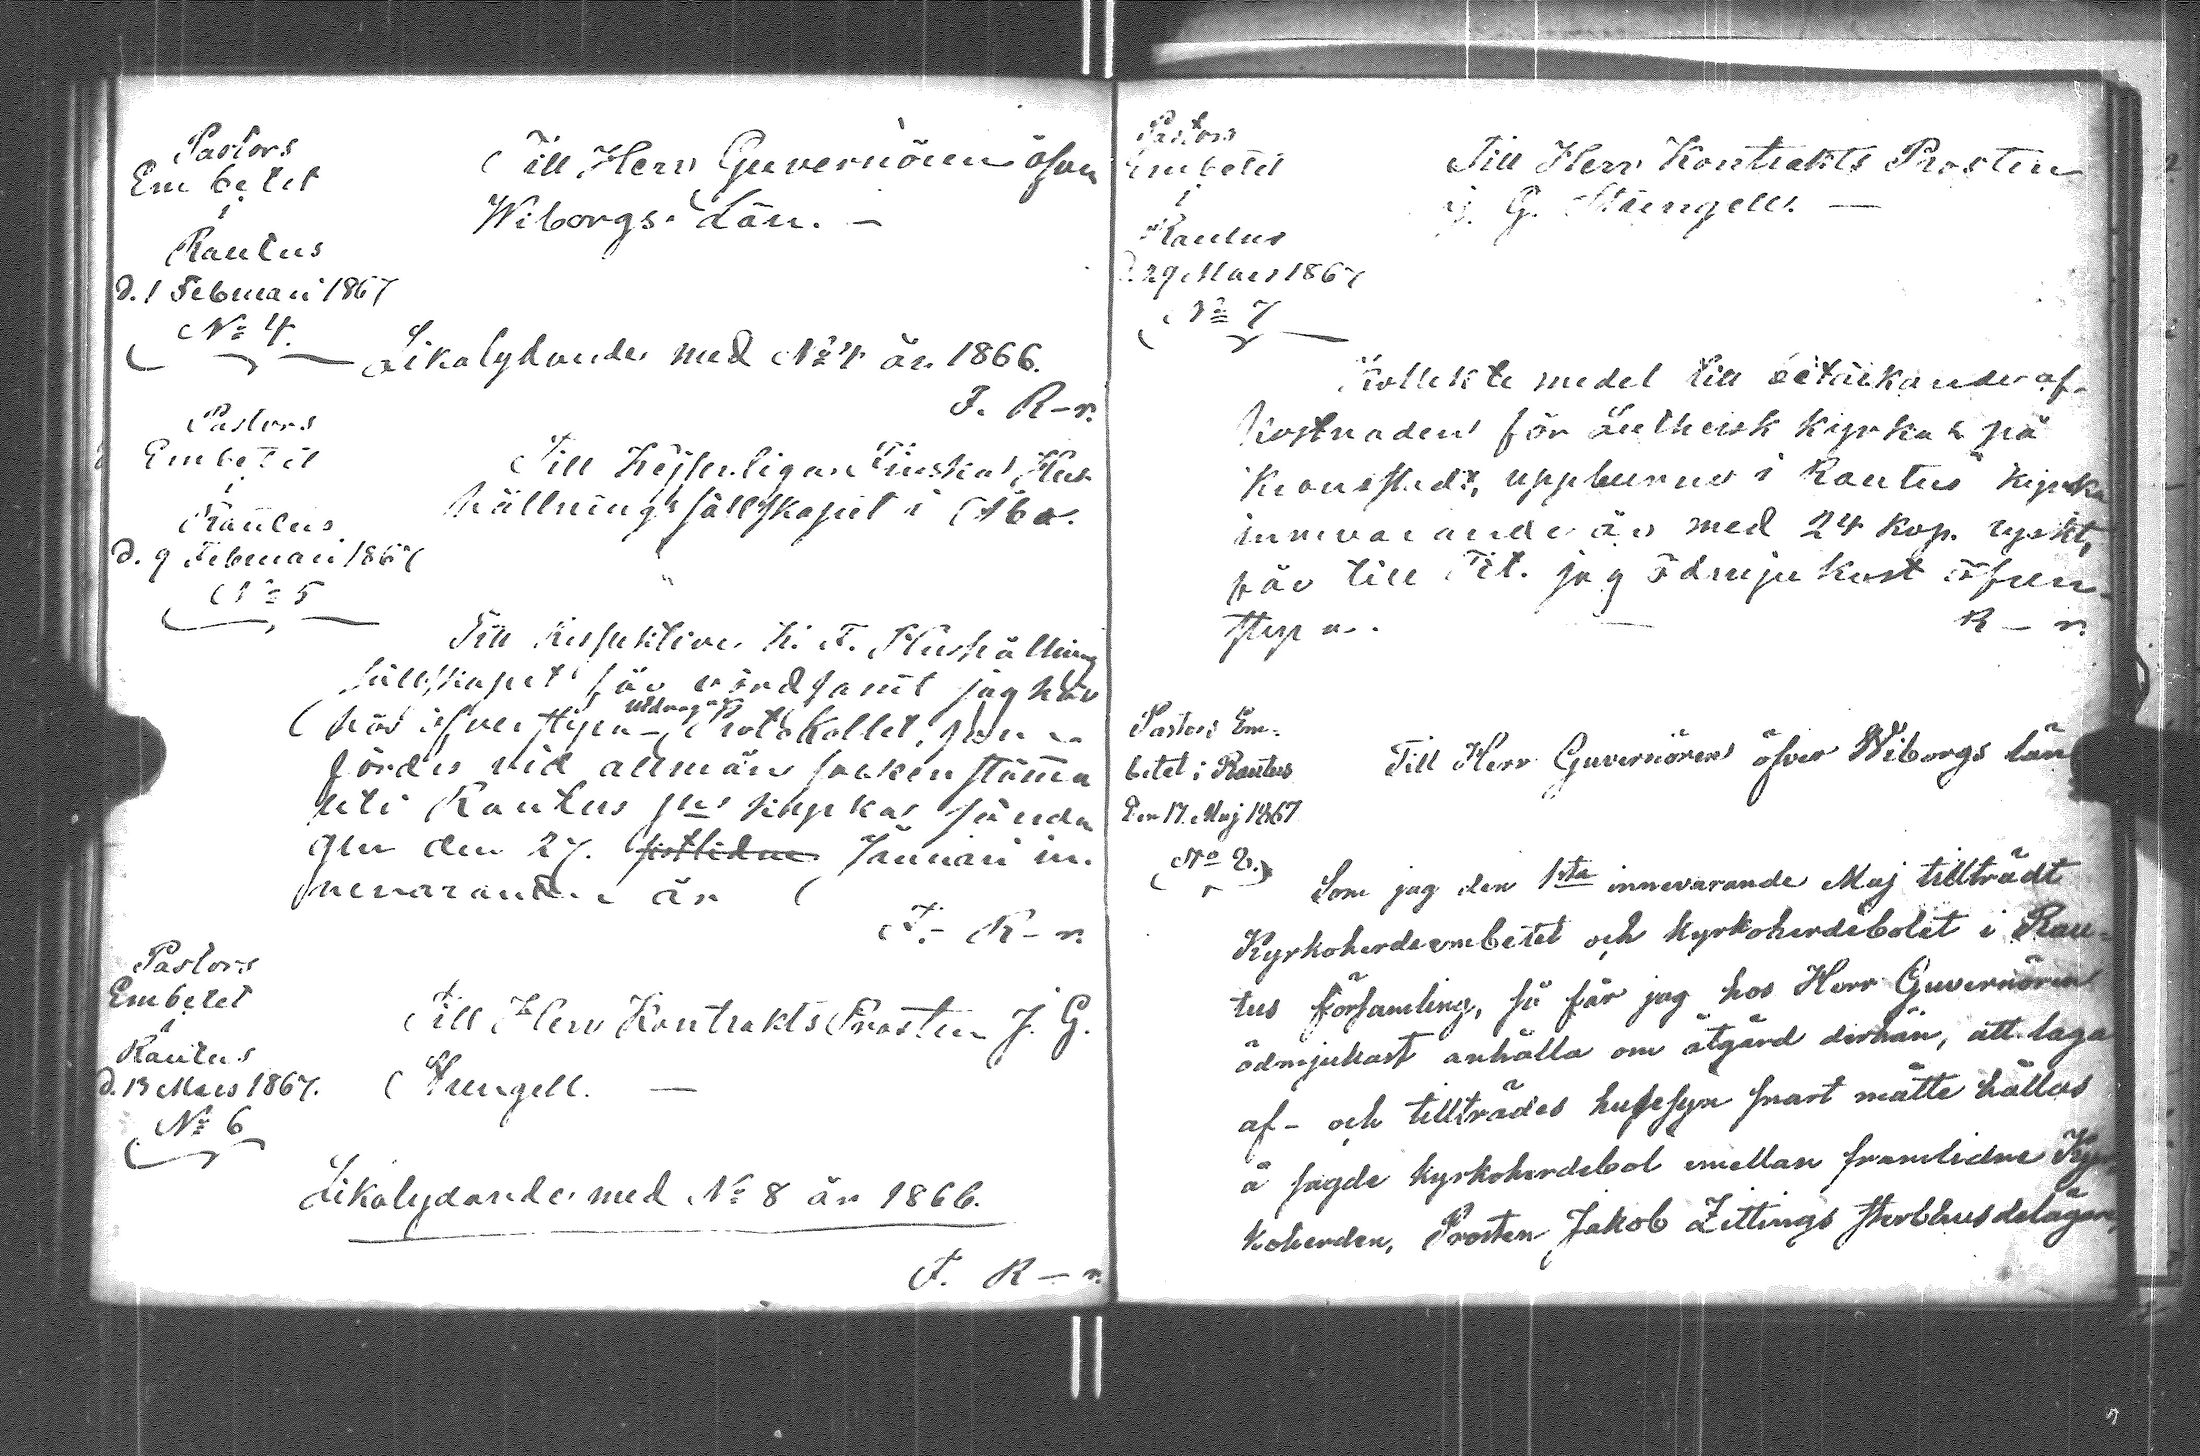 Pastors
Embetet
i
Rautus
d. 1 Februari 1867
No 4.
Till Herr Guvernören öfver
Wiborgs Län. —
Likalydande med No 4 år 1866.
F. R—r.
Pastors
Embetet
i
Rautus
d. 9 Februari 1867
No 5
Till Kejserliga Finska Hus
hållningssällskapet i Åbo.
Till Respektive K. F. Hushållning
sällskapet får vördsamt jag här
hos öfverstyra utdrag af Protokollet, som
fördes vid allmän sockenstämma
uti Rautus sns kyrka sönda
gen den 27. sistlidne Januari in-
nevarande år
F. R—r.
Pastors
Embetet
i
Rautus
d. 13 Mars 1867.
No 6
Till Herr Kontrakts Prosten J. G.
Strengell. —
Likalydande med No 8 år 1866.
F. R—r.
Pastors
Embetet
i
Rautus
d. 29 Mars 1867
No 7
Till Herr Kontrakts Prosten
J. G. Strengell. —
Kollekte medel till betäckande af
kostnaden för Luthersk kyrka på
Kronstadt, uppburne i Rautus kyrka
innevarande år med 24 kop. ryskt,
får till Tit. jag ödmjukast öfver-
styra. —
R—r.
Pastors Em-
betet i Rautus
den 17. Maj 1867
No 8.
Till Herr Guvernören öfver Wiborgs län
Som jag den 1sta innevarande Maj tillträdt
Kyrkoherdeembetet och kyrkoherdebolet i Rau-
tus församling, så får jag hos Herr Guvernören
ödmjukast anhålla om åtgärd derhän, att laga
af- och tillträdes husesyn snart måtte hållas
å sagde kyrkoherdebol emellan framlidne Kyr
koherden, Prosten Jakob Zittings sterbhusdelägare,